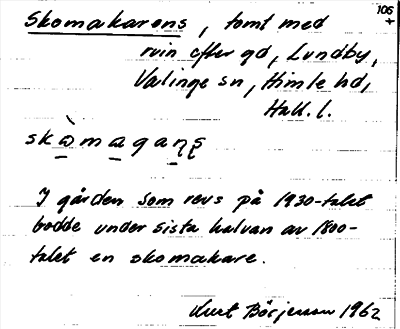 106
Skomakarens, tomt med
ruin efter gd, Lundby,
Valinge sn, Himle hd,
Hall. l.
I gården som revs på 1930-talet
bodde under sista halvan av 1800-
talet en skomakare.
Kurt Börjesson 1962